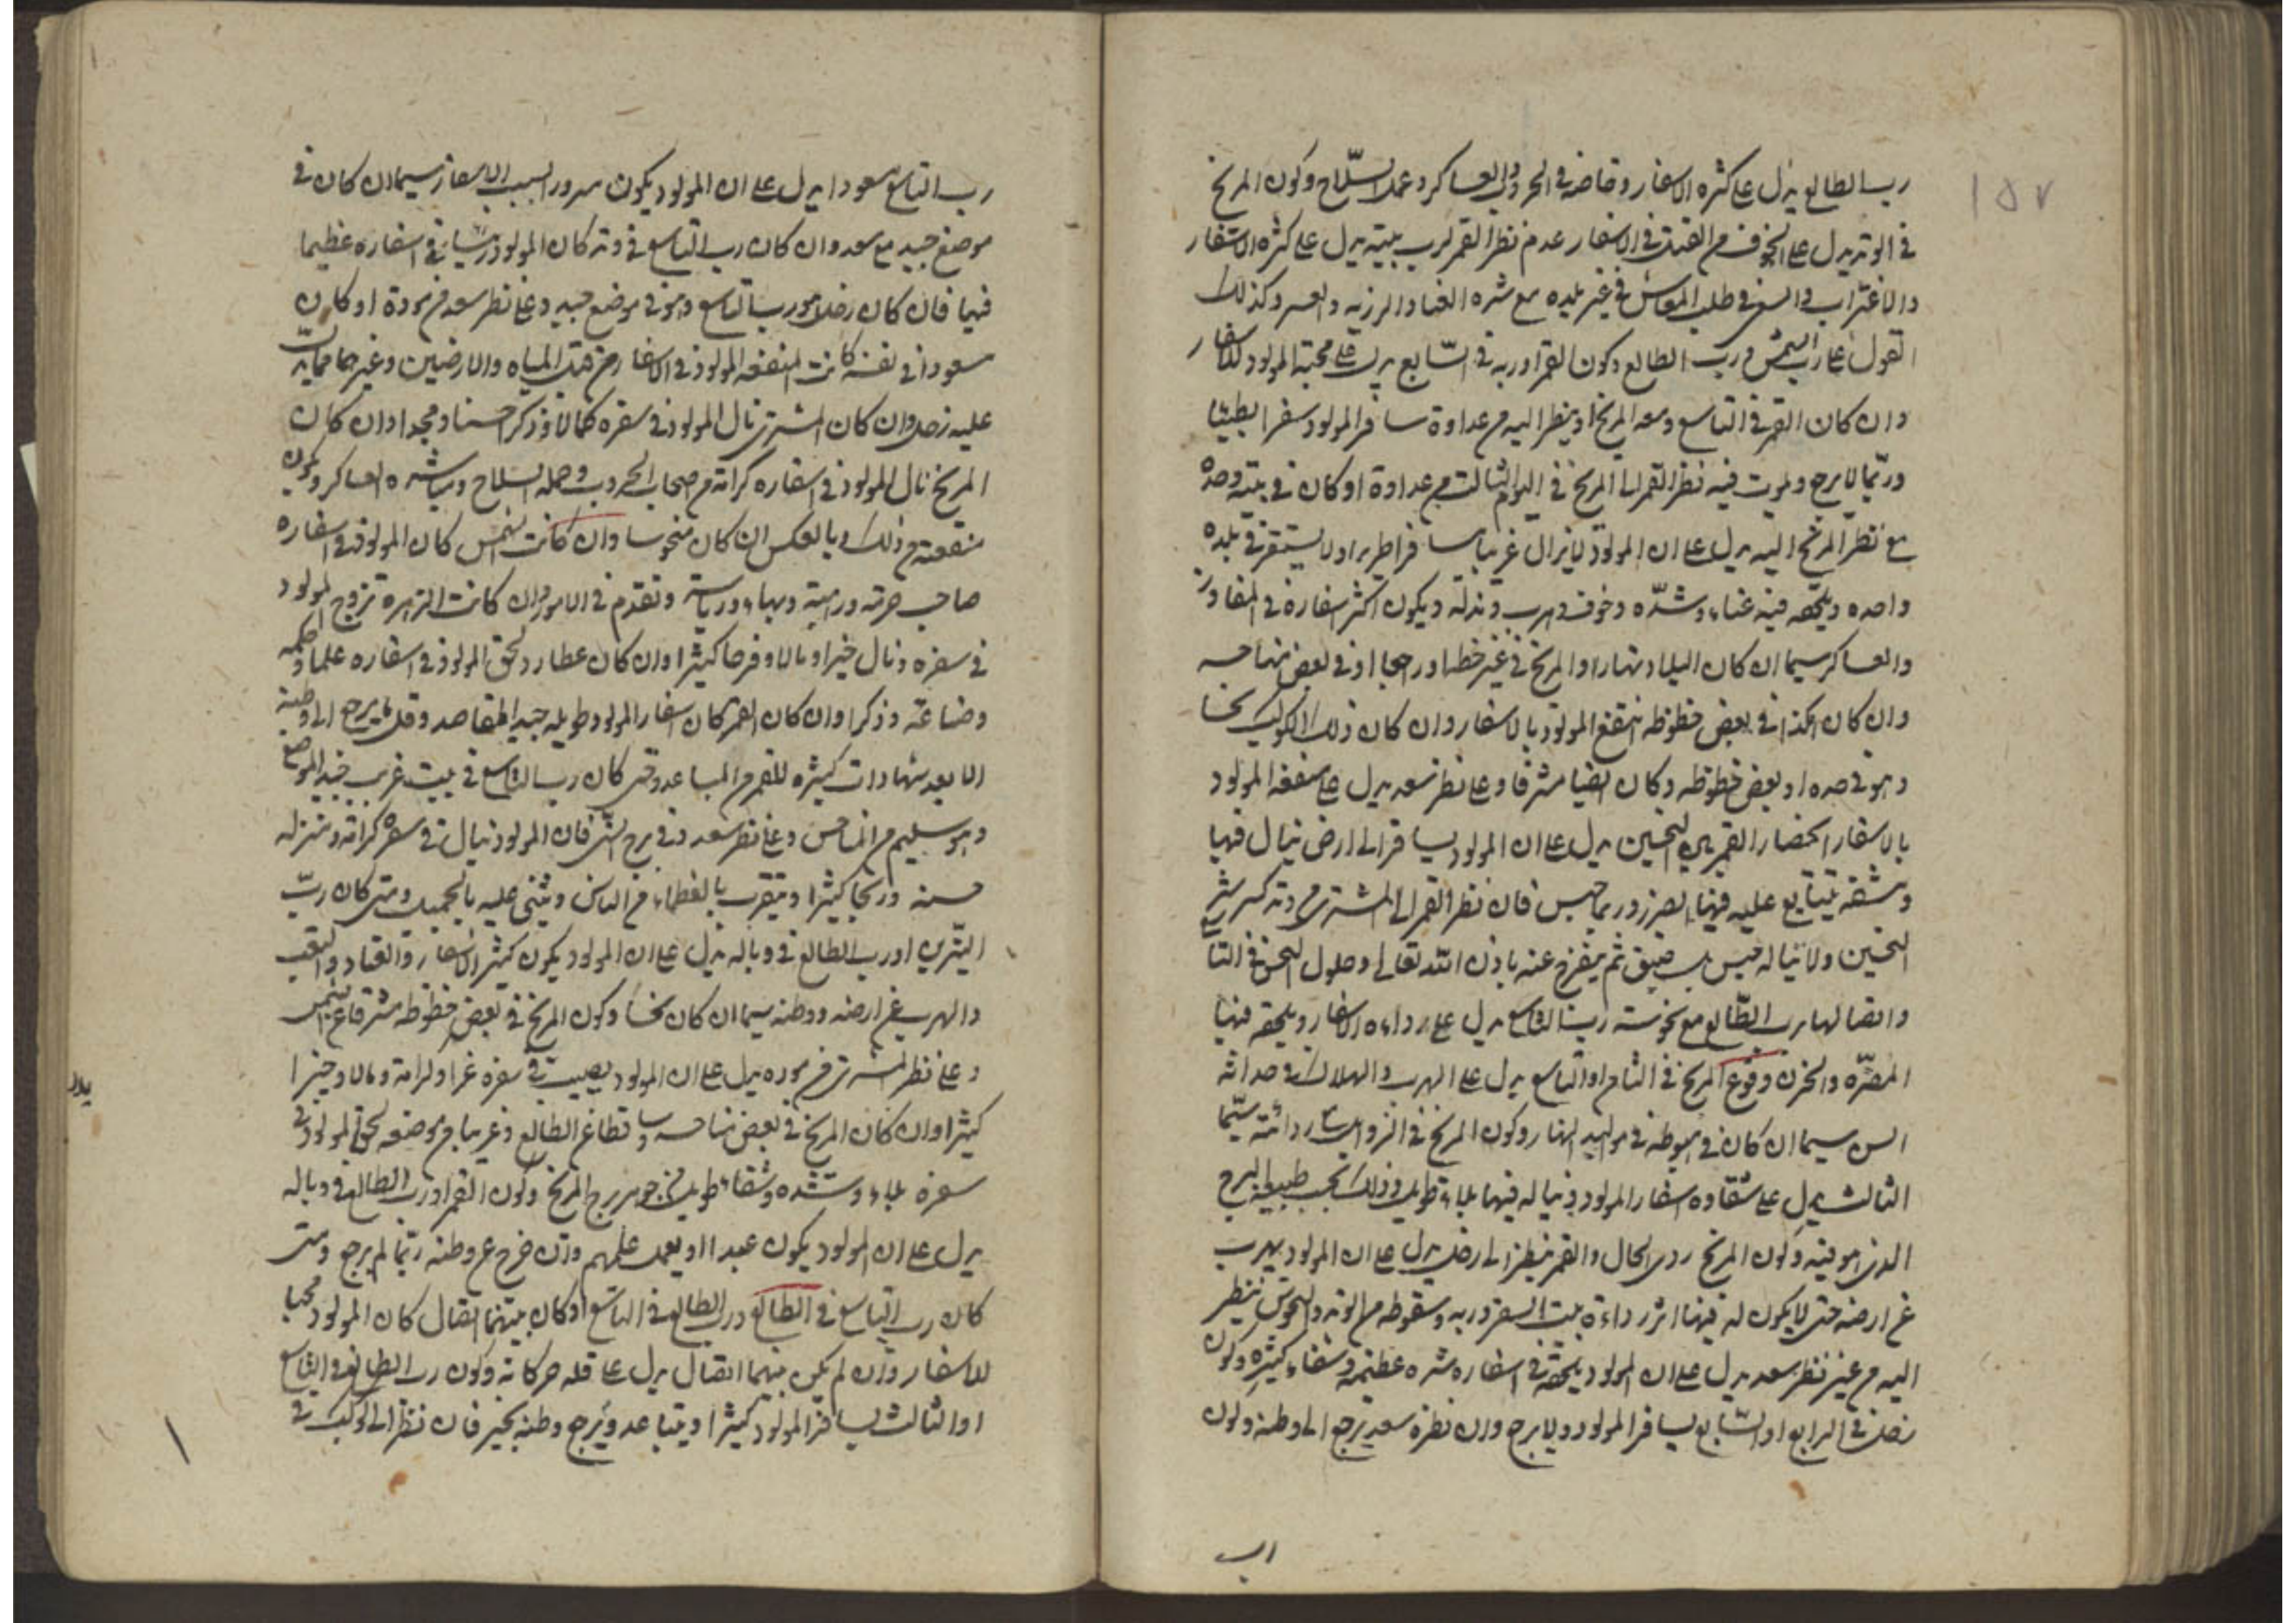 ١٥٧
رب الطالع يدل على كثره الاسفار وخاصة في الحروب والعساكر وعمل السلاح وكون المريخ
في الوتد يدل على الخوف من القتل في الاسفار عدم نظر القمر لرب بيته يدل على كثره الاسفار
والاغتراب والسفر في طلب المعاش في غير بلده مع شره العنا والرزيه والعسر وكذلك
القول على رب الشمس ورب الطالع وكون القمر او ربه في السابع يدل على محبة المولود للاسفار
وان كان القمر في التاسع ومعه المريخ او ينظر اليه من عداوة سافر المولود سفرا بطيئا
وربما لا يرجع ويموت فيه نظر القمر الى المريخ في اليوم الثالث من عداوة او كان في بيته وحده
مع نظر المريخ اليه يدل على ان المولود لا يزال غريبا مسافرا طريدا ولا يستقر في بلده
واحده ويلحقه فيه عناء وشدّه وخوف وهرب ومذلة ويكون اكثر اسفاره في المفاوز
والعساكر سيما ان كان الميلاد نهارا والمريخ في غير حظه او راجعا او في بعض مناحسه
وان كان هكذا في بعض حظوظه انتفع المولود بالاسفار وان كان ذلك الكوكب نحسا
وهو في حده او بعض حظوظه وكان ايضا مشرقا وعلى نظر سعد يدل على منفعة المولود
بالاسفار انحصار القمر بين النحسين يدل على ان المولود يسافر الى ارض ينال فيها
ومشقه يتتابع عليه فيها الضرر وربما حبس فان نظر القمر الى المشتري من وتد كسر شر
النحسين ولا يناله حبس بل ضيق ثم يفرج عنه باذن الله تعالى وحلول النحس في التا
واتصالها برب الطالع مع نحوسة رب التاسع يدل على رداءه الاسفار ويلحقه فيها
المضره والحزن وقوع المريخ في الثامن او التاسع يدل على الهرب والهلاك في حداثه
السن سيما ان كان في هبوطه في مواليد النهار وكون المريخ في الزوايل رداءته سيّما
الثالث يدل على شقاوه اسفار المولود ويناله فيها بلاء طويل وذلك بحسب طبيعة البرج
الذي هو فيه وكون المريخ ردي الحال والقمر ينظر الى زحل يدل على ان المولود يهرب
عن ارضه حتى لا يكون له فيها اثر رداءة بيت السفر وربه وسقوطه من الوتد والنحوس تنظر
اليه من غير نظر سعد يدل على ان المولود يلحقه في اسفاره شره عظيمة وشقاء كثيره وكون
زحل في الرابع او السابع يسافر المولود ولا يرجع وان نظره سعد يرجع الى وطنه وكون
رب التاسع مسعودا يدل على ان المولود يكون مسرورا بسبب الاسفار سيما ان كان في
موضع جيد مع سعد وان كان رب التاسع في وتد كان المولود رئيسا في اسفاره عظيما
فيها فان كان زحل هو رب التاسع وهو في موضع جيد وعلى نظر سعد من مودة او كان
مسعودا في نفسه كانت المنفعه المولود في الاسفار من قبل المياه والارضين وغيرهما مما يدل
عليه زحل وان كان المشتري نال المولود في سفره كمالا وذكرا حسنا ومجدا وان كان
المريخ نال المولود في اسفاره كرامة من اصحاب الحروب وحمله السلاح ومباشره العساكر ويكون
منفعته من ذلك وبالعكس ان كان منحوسا وان كانت الشمس كان المولود في اسفاره
صاحب حرمة ورتبة وبهاء ورياسة وتقدم في الامور وان كانت الزهره تزوج المولود
في سفره ونال خيرا ومالا وفرحا كثيرا وان كان عطارد لحق المولود في اسفاره علما وحكمه
وصناعة وذكرا وان كان القمر كان اسفار المولود طويله جيد المقاصد وقل ما يرجع الى وطنه
الا بعد شهادات كثيره للقمر من المباعد ومتى كان رب التاسع في بيت غريب جيد الموضع
وهو سليم من المناحس وعلى نظر سعد وفي برج النير فان المولود ينال في سفره كرامة ومنزله
حسنه وربحا كثيرا ويتقرب بالعظماء من الناس ويثني عليه بالجميل ومتى كان رب
النيرين او رب الطالع في وباله يدل على ان المولود يكون كثير الاسفار والعناد والتعب
والهرب عن ارضه ووطنه سيما ان كان نحسا وكون المريخ في بعض حظوظه مشرقا عن الشمس
وعلى نظر المشتري من موده يدل على ان المولود يصيب في سفره عزا وكرامة ومالا وخيرا
كثيرا وان كان المريخ في بعض مناحسه وساقطا عن الطالع وغريبا من موضعه لحق المولود في
سفره بلاء وشده وشقاء طويل من جوهر برج المريخ وكون القمر او رب الطالع في وباله
يدل على ان المولود يكون عبدا او يعمل عملهم وان خرج عن وطنه ربما لم يرجع ومتى
كان رب التاسع في الطالع ورب الطالع في التاسع او كان بينهما اتصال كان المولود محبا
للاسفار وان لم يكن بينهما اتصال يدل على قله حركاته وكون رب الطالع في التاسع
او الثالث يسافر المولود كثيرا ويتباعد ويرجع وطنه بخير فان نظر الى كوكب في